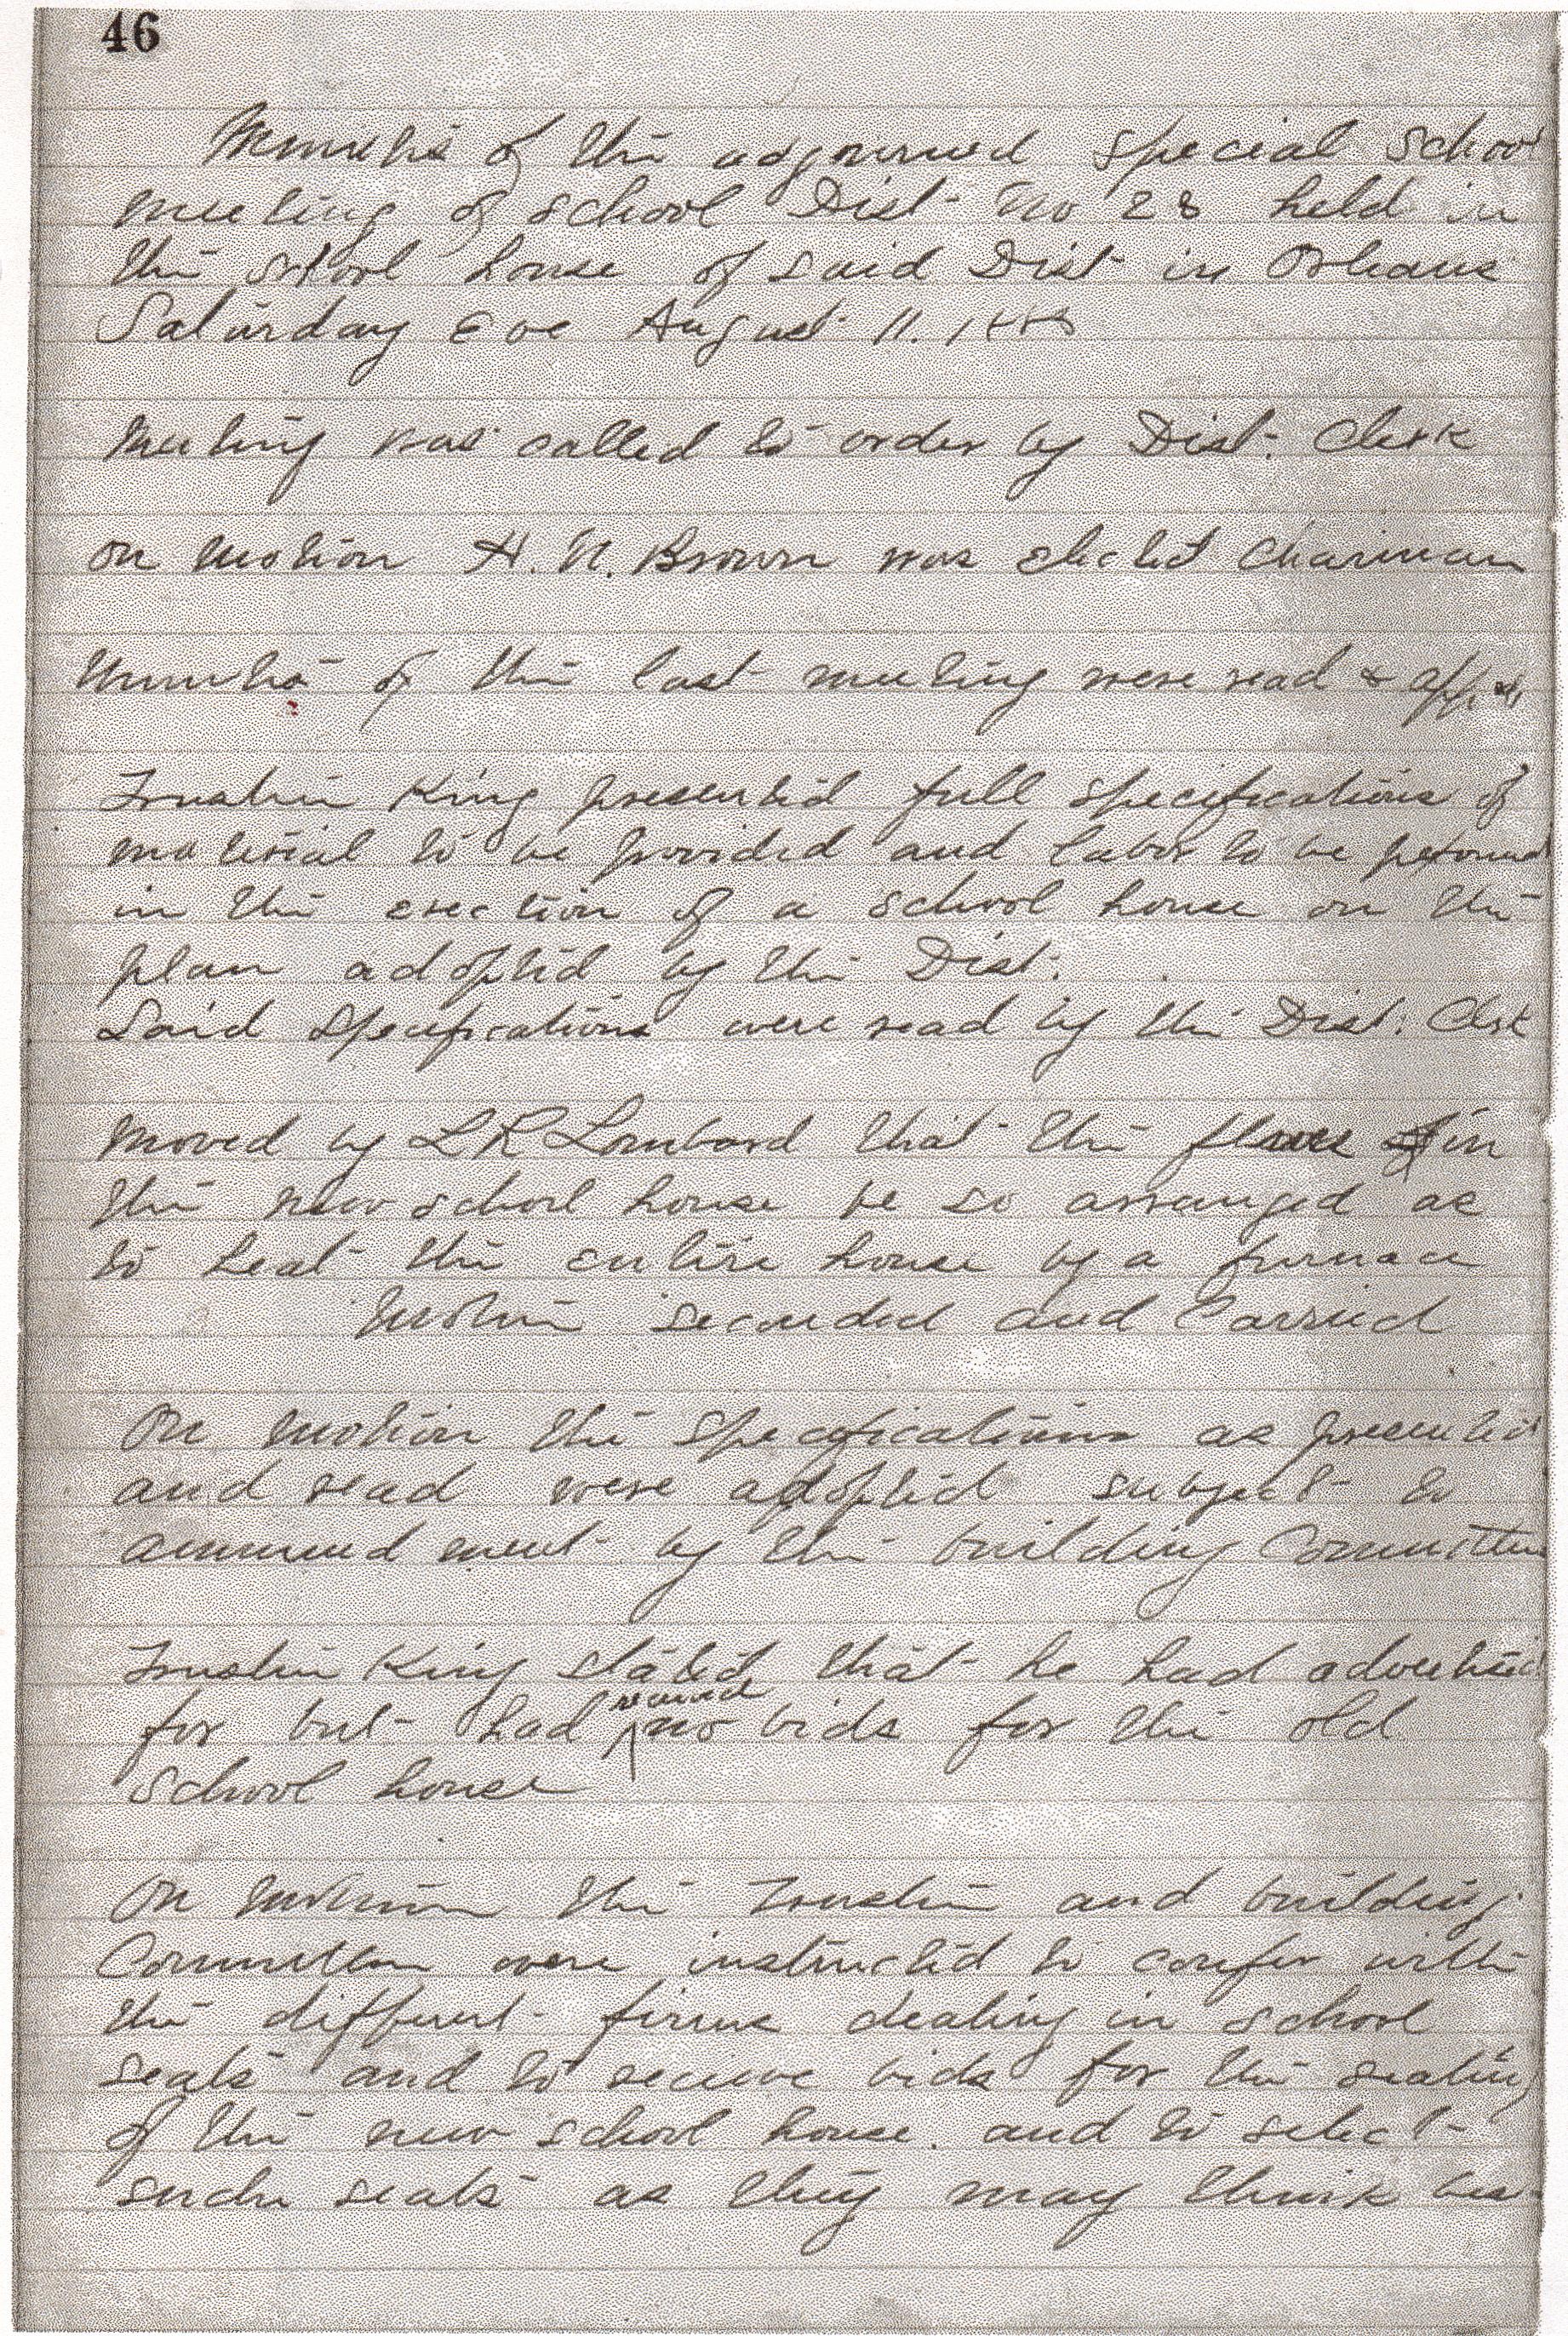 46
Minutes of the adjourned special School
meeting of school Dist no 28 held in
the school house of said Dist in Orleans
Saturday Eve August 11. 1888
Meeting was called to order by Dist. Clerk
on motion H. N. Brown was elected Chairman
Minutes of the last meeting were read &
Trustee King presented full specifications of
material to be provided and labor to be
in the erection of a school house on the
plan adopted by the Dist.
Said specifications were read by the Dist. Clerk
Moved by L R Lombard that the flues in
the new school house be so arranged as
to heat the entire house by a furnace
Motion seconded and Carried
On motion the specifications as presented
and read were adopted subject to
ammendment by the building Committee
Trustee King stated that he had advertised
for but had received no bids for the old
school house
On motion the Trustee and building
Committee were instructed to confer with
the different firms dealing in school
seats and to recieve bids for the seating
of the new school house. and to select
such seats as they may think bes